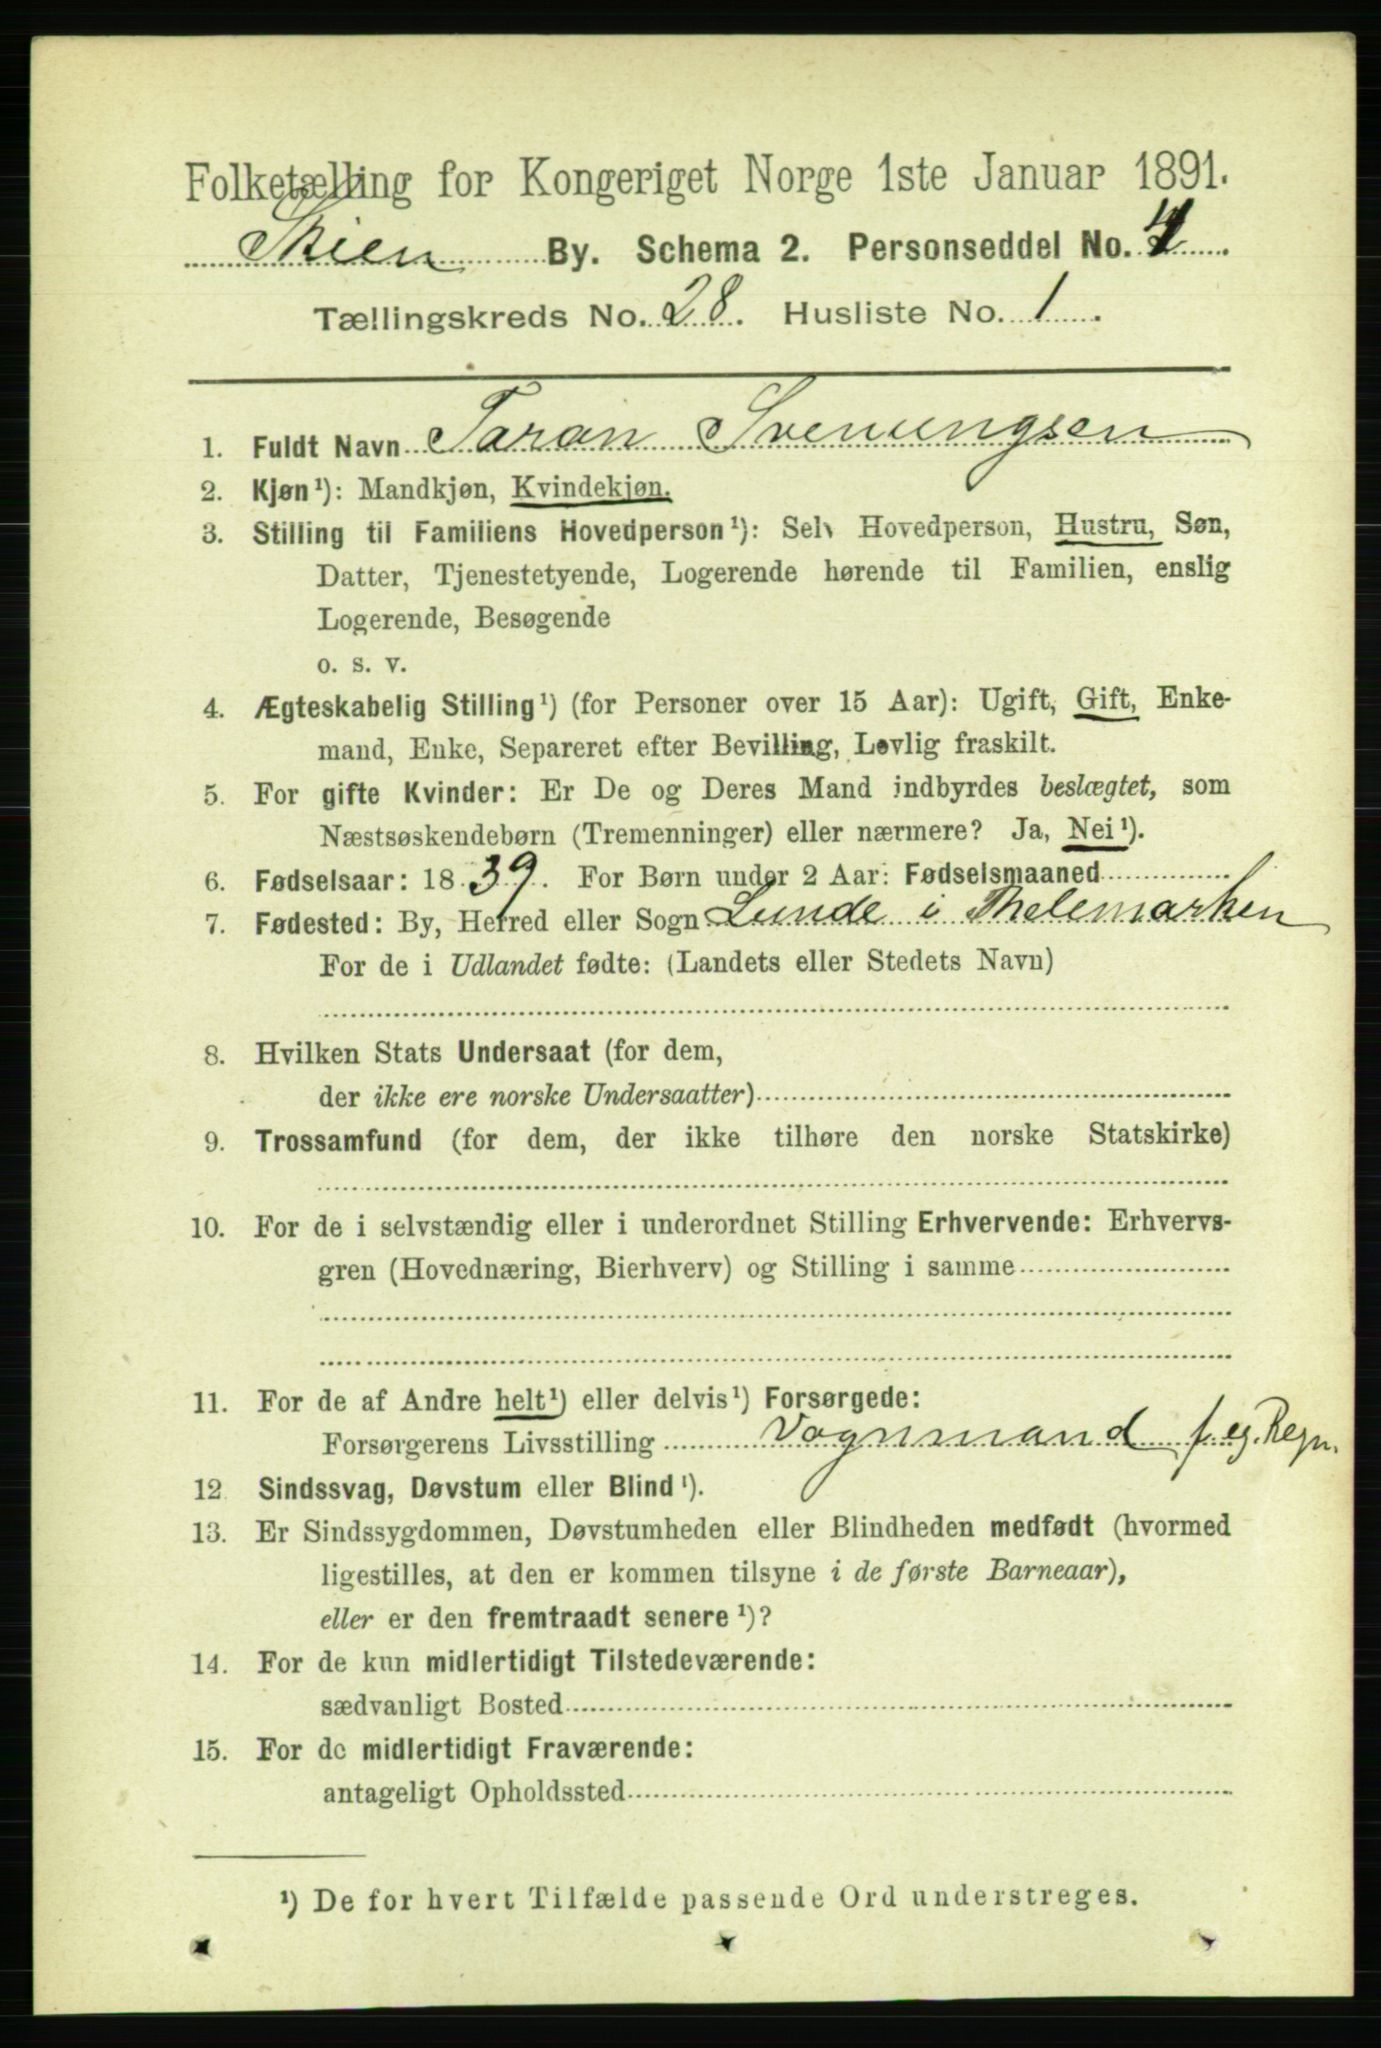 Folketælling for Kongeriget Norge 1ste Januar 1891.
Skien By. Schema 2. Personseddel No.
Tællingskreds No. 28. Husliste No. 1.
1. Fuldt Navn Taran Svenungsen
2. Kjøn¹): Mandkjøn, Kvindekjøn.
3. Stilling til Familiens Hovedperson¹): Selv Hovedperson, Hustru, Søn,
Datter, Tjenestetyende, Logerende hørende til Familien, enslig
Logerende, Besøgende
o. s. v.
4. Ægteskabelig Stilling¹) (for Personer over 15 Aar): Ugift, Gift, Enke-
mand, Enke, Separeret efter Bevilling, Lovlig fraskilt.
5. For gifte Kvinder: Er De og Deres Mand indbyrdes beslægtet, som
Næstsøskendebørn (Tremenninger) eller nærmere? Ja, Nei¹).
6. Fødselsaar: 1839. For Børn under 2 Aar: Fødselsmaaned
7. Fødested: By, Herred eller Sogn Lunde i Thelemarken
For de i Udlandet fødte: (Landets eller Stedets Navn)
8. Hvilken Stats Undersaat (for dem,
der ikke ere norske Undersaatter)
9. Trossamfund (for dem, der ikke tilhøre den norske Statskirke)
10. For de i selvstændig eller i underordnet Stilling Erhvervende: Erhvervs-
gren (Hovednæring, Bierhverv) og Stilling i samme
11. For de af Andre helt¹) eller delvis¹) Forsørgede:
Forsørgerens Livsstilling Vognmand f. eg. Regn.
12 Sindssvag, Døvstum eller Blind¹).
13. Er Sindssygdommen, Døvstumheden eller Blindheden medfødt (hvormed
ligestilles, at den er kommen tilsyne i de første Barneaar),
eller er den fremtraadt senere¹)?
14. For de kun midlertidigt Tilstedeværende:
sædvanligt Bosted
15. For de midlertidigt Fraværende:
antageligt Opholdssted
¹) De for hvert Tilfælde passende Ord understreges.